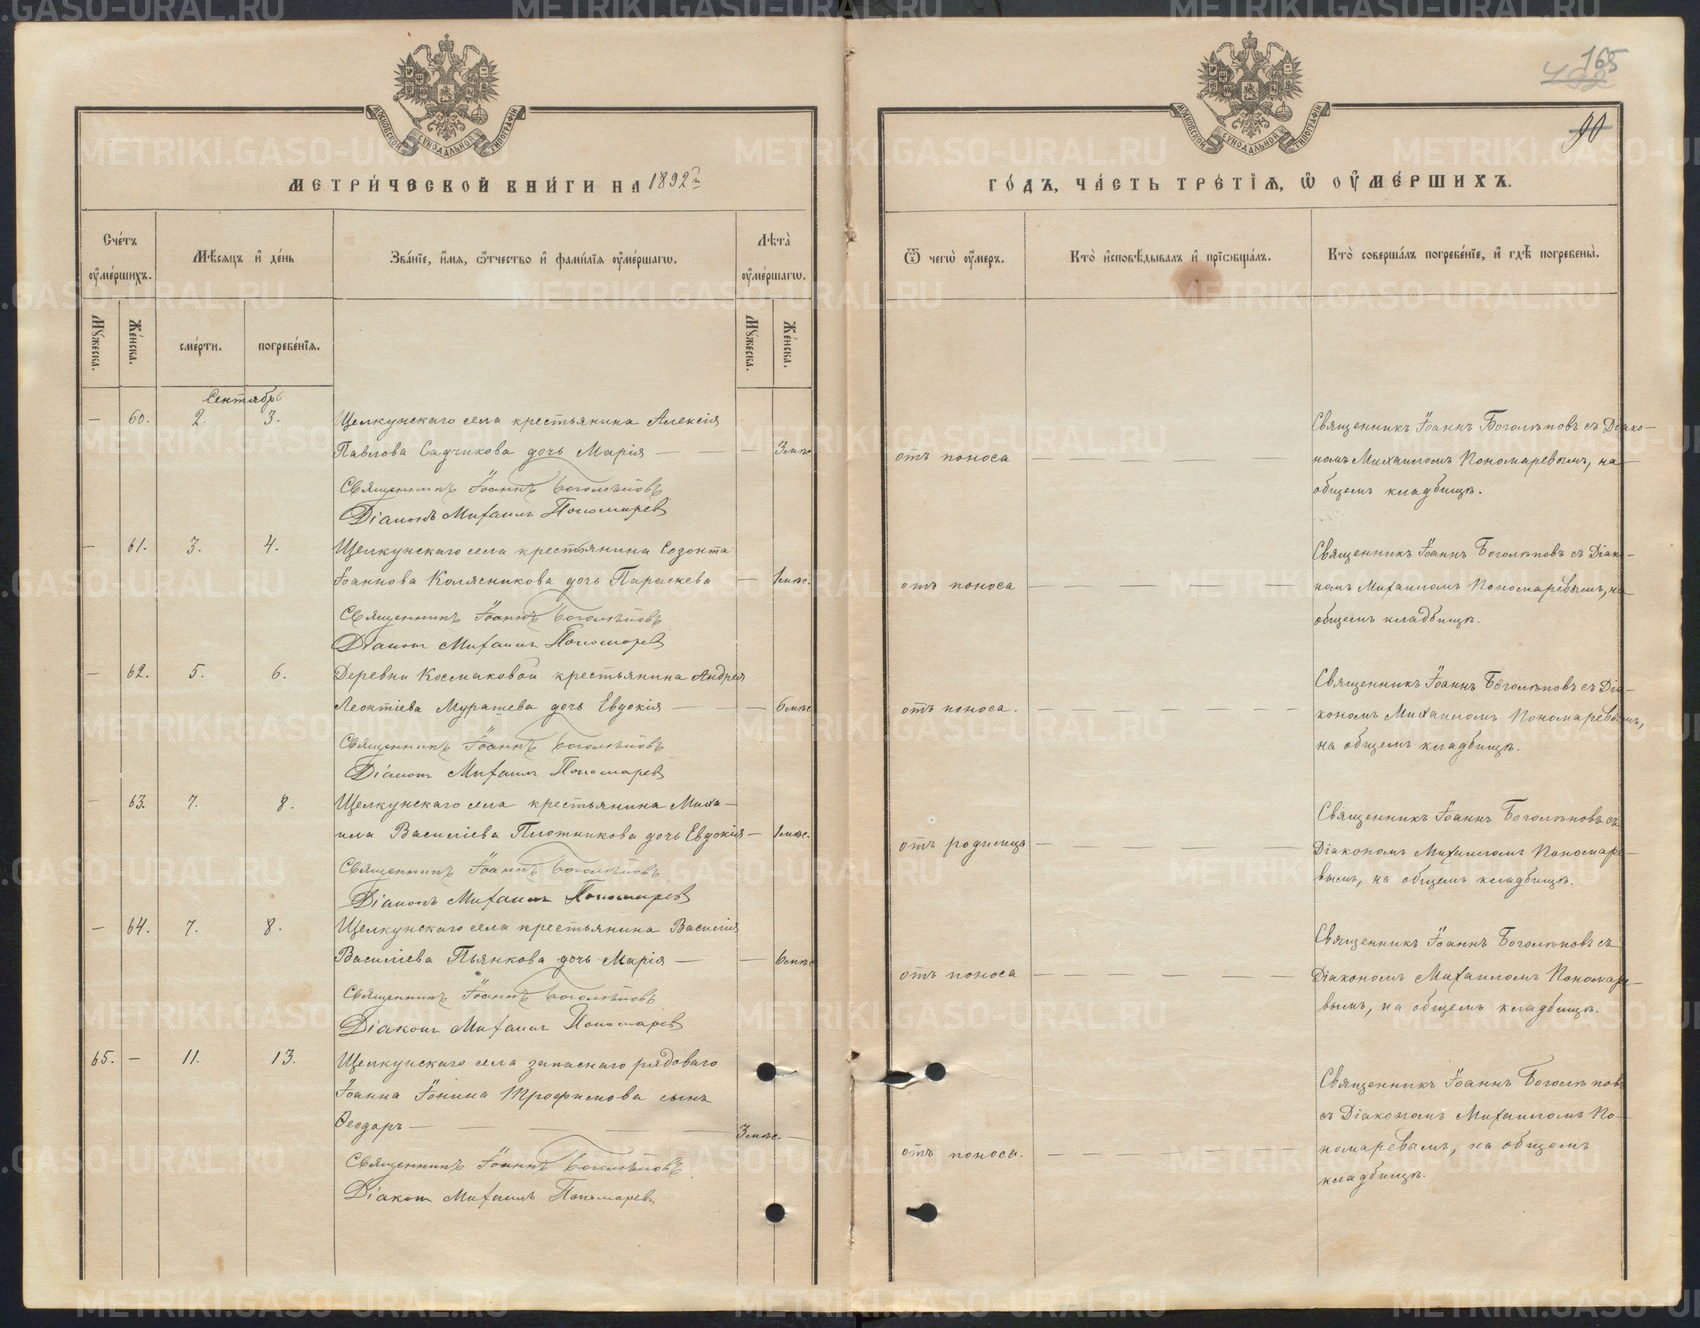 165
90
МОСКОВСКОЙ СѴНОДАЛЬНОЙ ТИПОГРАФІИ
МОСКОВСКОЙ СѴНОДАЛЬНОЙ ТИПОГРАФІИ
МЕТРИ́ЧЕСКОЙ КНИ́ГИ НА 1892 г.
ГО́ДЪ, ЧА́СТЬ ТРЕ́ТІѦ, Ѡ҆ ОУ҆МЕ́РШИХЪ.
Сче́тъ оу҆ме́ршихъ.
Мѣ́сяцъ и҆ де́нь
Зва́нїе, и҆́мя, ѻ҆́тчество и҆ фами́лїя оу҆ме́ршагѡ.
Лѣ́та оу҆ме́ршагѡ.
Ѿ чегѡ̀ оу҆́меръ.
Кто̀ и҆сповѣ́дывалъ и҆ прїѡбща́лъ.
Кто̀ соверша́лъ погребе́нїе, и҆ гдѣ̀ погребены̀.
Мꙋ́жеска.
Же́нска.
сме́рти.
погребе́нїя.
Мꙋ́жеска.
Же́нска.
Сентябрь
— 60. 2. 3. Щелкунскаго села крестьянина Алексія
Павлова Садчикова дочь Марія — — — 3 мѣс.
Священникъ Іоаннъ Боголѣповъ
Діаконъ Михаилъ Пономарев
отъ поноса — — — — —
Священникъ Іоаннъ Боголѣповъ съ Діако-
номъ Михаиломъ Пономаревымъ, на
общемъ кладбищѣ.
— 61. 3. 4. Щелкунскаго села крестьянина Созонта
Іоаннова Колясникова дочь Параскева — 1 мѣс.
Священникъ Іоаннъ Боголѣповъ
Діакон Михаилъ Пономарев
отъ поноса — — — — —
Священникъ Іоаннъ Боголѣповъ съ Діако-
номъ Михаиломъ Пономаревымъ, на
общемъ кладбищѣ.
— 62. 5. 6. Деревни Космаковой крестьянина Андрея
Леонтіева Мурашева дочь Евдокія — — 6 мѣс.
Священникъ Іоаннъ Боголѣповъ
Діакон Михаилъ Пономарев
отъ поноса. — — — — —
Священникъ Іоаннъ Боголѣповъ съ Діа-
кономъ Михаиломъ Пономаревымъ,
на общемъ кладбищѣ.
— 63. 7. 8. Щелкунскаго села крестьянина Миха-
ила Василіева Плотникова дочь Евдокія — 1 мѣс.
Священникъ Іоаннъ Боголѣповъ
Діаконъ Михаилъ Пономарев
отъ родимца — — — — —
Священникъ Іоаннъ Боголѣповъ съ
Діакономъ Михаиломъ Пономаре-
вымъ, на общемъ кладбищѣ.
— 64. 7. 8. Щелкунскаго села крестьянина Василія
Василіева Пьянкова дочь Марія — — 6 мѣс.
Священникъ Іоаннъ Боголѣповъ
Діакон Михаилъ Пономарев
отъ поноса — — — — —
Священникъ Іоаннъ Боголѣповъ съ
Діакономъ Михаиломъ Пономаре-
вымъ, на общемъ кладбищѣ.
65. — 11. 13. Щелкунскаго села запаснаго рядоваго
Іоанна Іонина Трофимова сынъ
Ѳеодоръ — — — 3 мѣс. —
Священникъ Іоаннъ Боголѣповъ
Діакон Михаилъ Пономарев
отъ поноса. — — — — —
Священникъ Іоаннъ Боголѣповъ
съ Діакономъ Михаиломъ По-
номаревымъ, на общемъ
кладбищѣ.
METRIKI.GASO-URAL.RU